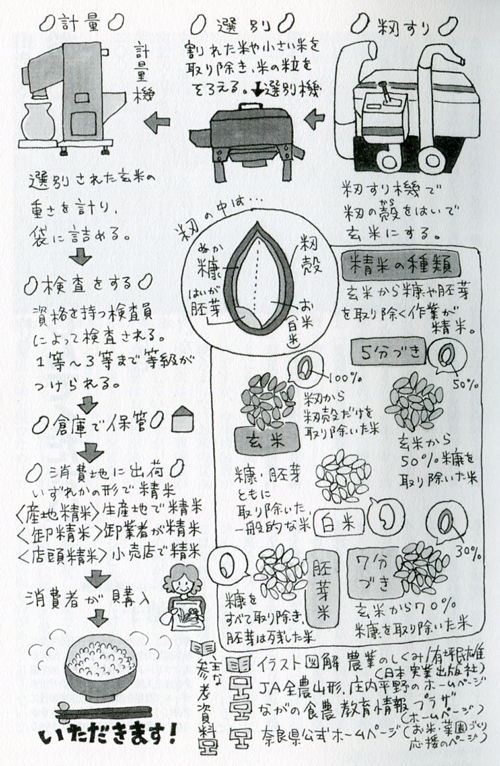 籾すり
籾すり機で
籾の殻をはいで
から
玄米にする。
選別
割れた米や小さい米を
取り除き、米の粒を
そろえる。
選別機
計量
計量機
選別された玄米の
重さを計り、
袋に詰める。
検査をする
資格を持つ検査員
によって検査される。
1等〜3等まで等級が
つけられる。
倉庫で保管
消費地に出荷
いずれかの形で精米
〈産地精米〉生産地で精米
〈卸精米〉卸業者が精米
〈店頭精米〉小売店で精米
消費者が購入
いただきます!
籾の中は…
ぬか
糠
はいが
胚芽
籾殻
お米
白米
精米の種類
玄米から糠や胚芽
を取り除く作業が
精米。
5分づき
50%
玄米から
50%糠を
取り除いた米
100%
籾から
籾殻だけを
取り除いた米
玄米
糠・胚芽
ともに
取り除いた、
一般的な米
白米
30%
7分
づき
玄米から70%
糠を取り除いた米
胚芽米
糠を
すべて取り除き、
胚芽は万残した米
主な参考資料
イラスト図解 農業のしくみ/有坪民雄
(日本実業出版社)
JA全農山形、庄内平野のホームページ
ながの食農教育情報プラザ
(ホームページ)
奈良県公式ホームページ(お米・菜園づくり
応援のページ)